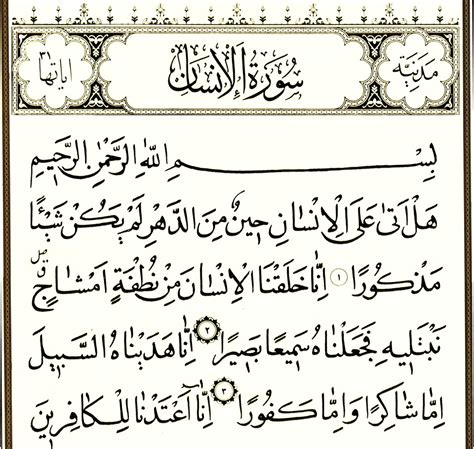 مَدَنِيَّة سُورَةُ الْإِنْسَانِ اياتها ٣١
بِسْمِ اللّٰهِ الرَّحْمٰنِ الرَّحِيمِ
هَلْ اَتٰى عَلَى الْاِنْسَانِ حِينٌ مِنَ الدَّهْرِ لَمْ يَكُنْ شَيْـًٔا
مَذْكُورًا ١ اِنَّا خَلَقْنَا الْاِنْسَانَ مِنْ نُطْفَةٍ اَمْشَاجٍ
نَبْتَلِيهِ فَجَعَلْنَاهُ سَمِيعًا بَصِيرًا ٢ اِنَّا هَدَيْنَاهُ السَّبِيلَ
اِمَّا شَاكِرًا وَاِمَّا كَفُورًا ٣ اِنَّٓا اَعْتَدْنَا لِلْكَافِرِينَ